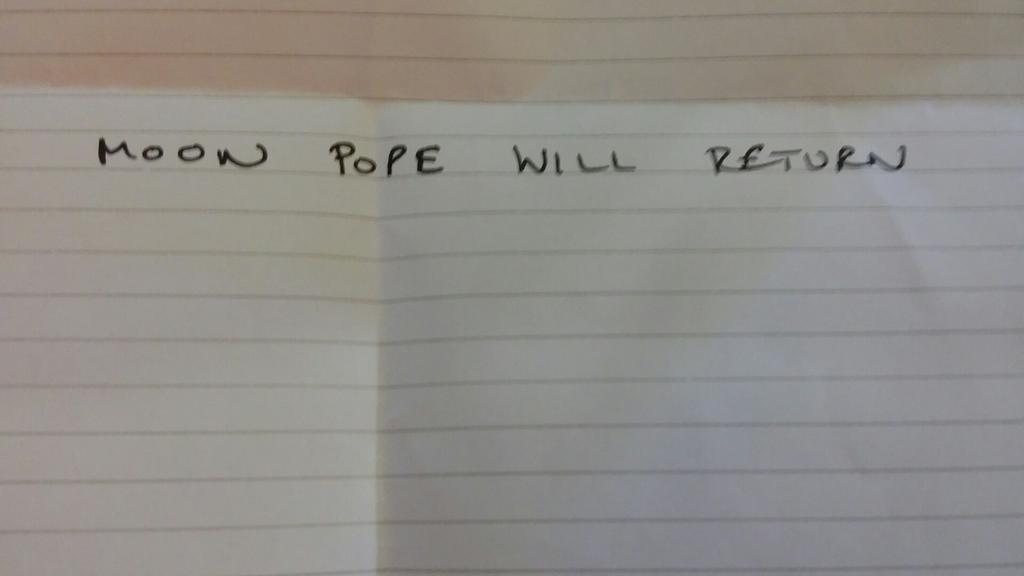 MOON POPE WILL RETURN